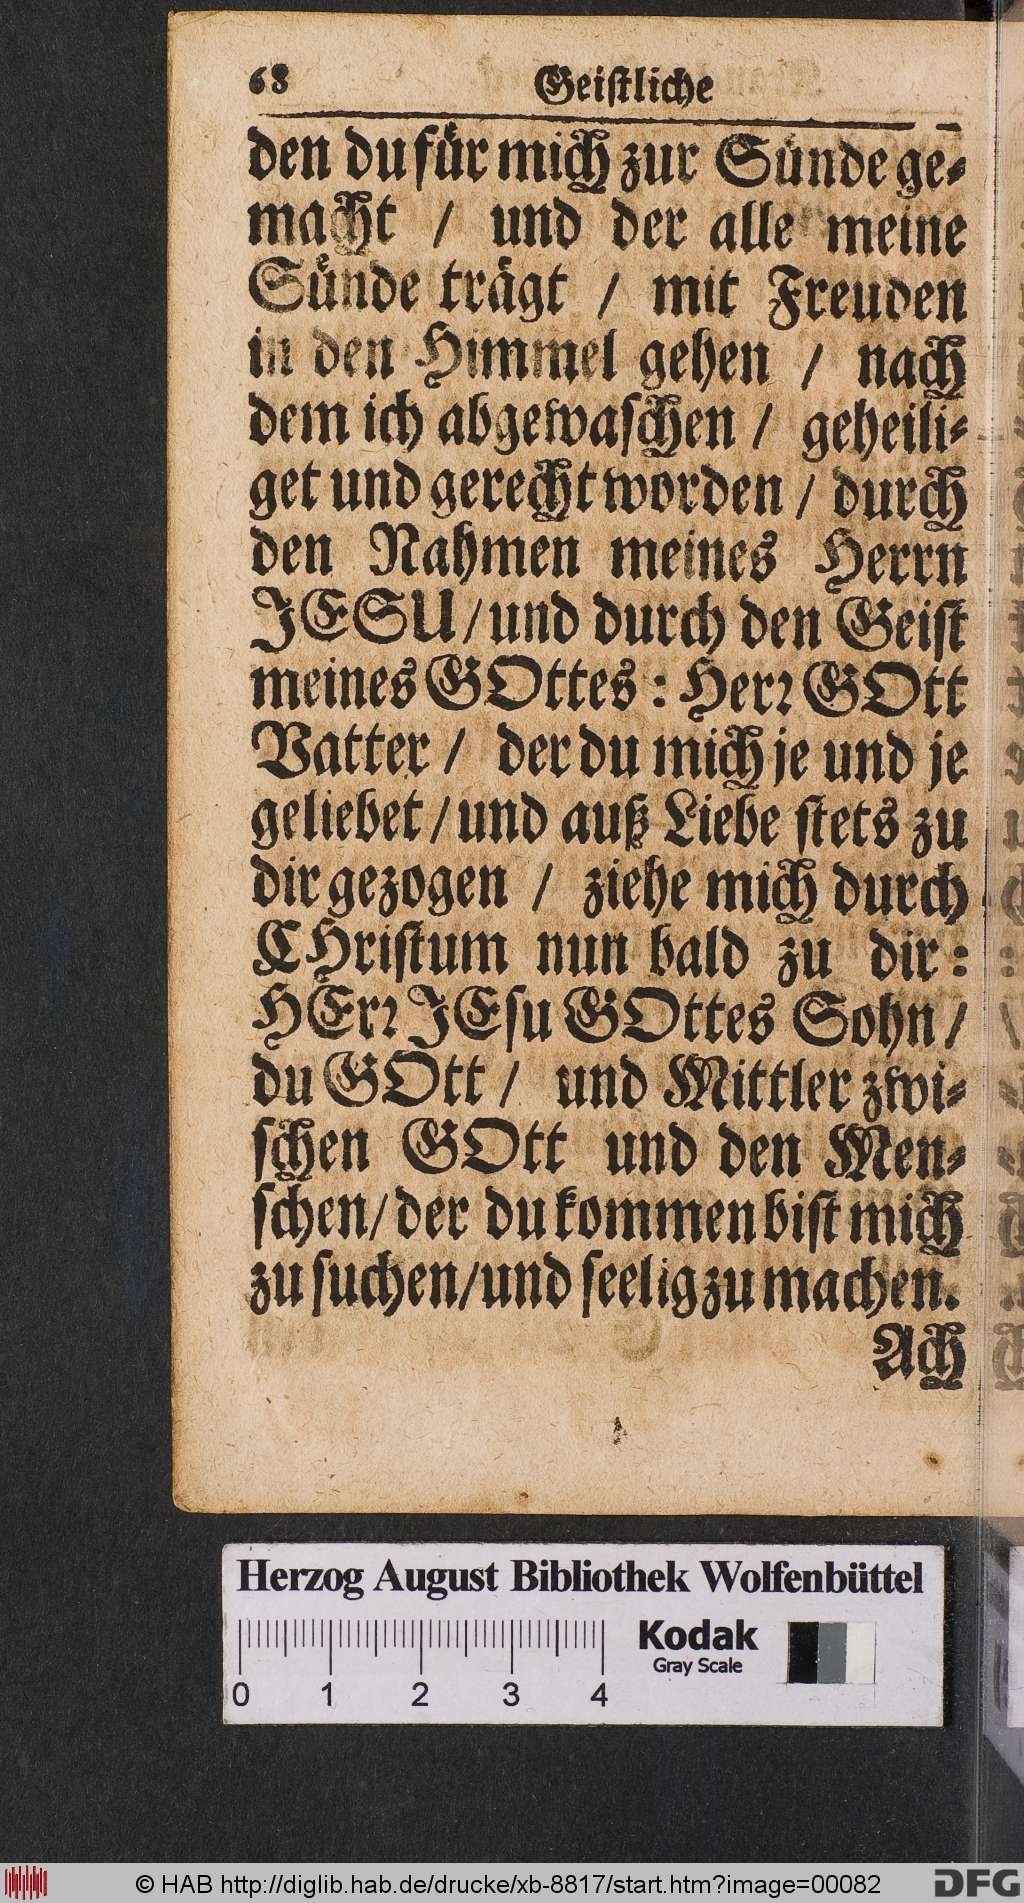 68 Geistliche
den du für mich zur Sünde ge-
macht / und der alle meine
Sünde trägt / mit Freuden
in den Himmel gehen / nach
dem ich abgewaschen / geheili-
get und gerecht worden / durch
den Nahmen meines Herrn
JESU / und durch den Geist
meines GOttes : Herr GOtt
Vatter / der du mich je und je
geliebet / und auß Liebe stets zu
dir gezogen / ziehe mich durch
CHristum nun bald zu dir :
HErr JEsu GOttes Sohn /
du GOtt / und Mittler zwi-
schen GOtt und den Men-
schen / der du kommen bist mich
zu suchen / und seelig zu machen.
Ach
Herzog August Bibliothek Wolfenbüttel
Kodak
Gray Scale
0 1 2 3 4
© HAB http://diglib.hab.de/drucke/xb-8817/start.htm?image=00082
DFG